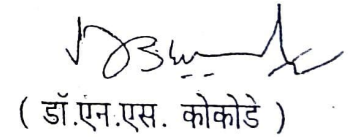 ( डॉ.एन.एस. कोकोडे )